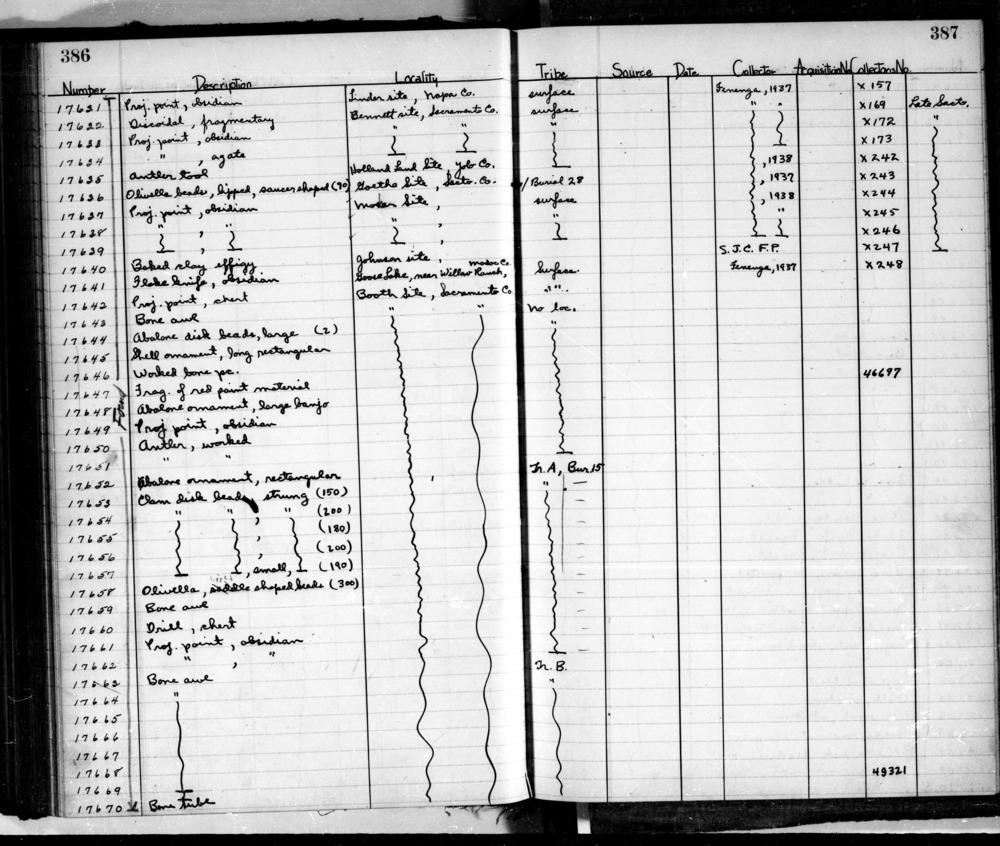 386
387
Number Description Locality Tribe Source Date Collector Acquisition No. Collectors No.
17631 Proj. point, obsidian Linder site, Napa Co. surface Fenenga, 1937 X157
17632 Discoidal, fragmentary Bennett site, Sacramento Co. surface " " X169 Late Sacto.
17633 Proj. point, obsidian " " " X172 "
17634 " , agate X173
17635 Antler tool Holland Land Site, Yolo Co. , 1938 X242
17636 Olivella beads, lipped, saucer shaped (90) Goethe Site, Sacto. Co. w/ Burial 28 , 1937 X243
17637 Proj. point, obsidian Site, surface , 1938 X244
17638 " , " " , " " X245
17639 , , X246
17640 Baked clay effigy Johnson site, S.J.C. F.P. X247
17641 Flake knife, obsidian Goose Lake, near Willow Ranch, Modoc Co. Surface Fenenga, 1937 X248
17642 Proj. point, chert Booth Site, Sacramento Co. " ".
17643 Bone awl " " no loc.
17644 Abalone disk beads, large (2) "
17645 Shell ornament, long rectangular
17646 Worked bone pc.
17647 Frag. of red paint material 46697
17648 Abalone ornament, large banjo
17649 Proj point, obsidian
17650 Antler, worked
17651 " "
17652 Abalone ornament, rectangular Tr. A, Bur. 15
17653 Clam disk beads, strung (150) " —
17654 " " , " (200)
17655 , (180)
17656 , (200)
17657 , small, (190)
17658 Olivella, saddle shaped beads (300)
17659 Bone awl
17660 Drill, chert
17661 Proj. point, obsidian
17662 " , "
17663 Bone awl Tr. B.
17664 " "
17665
17666
17667
17668
17669 49321
17670 Bone tube